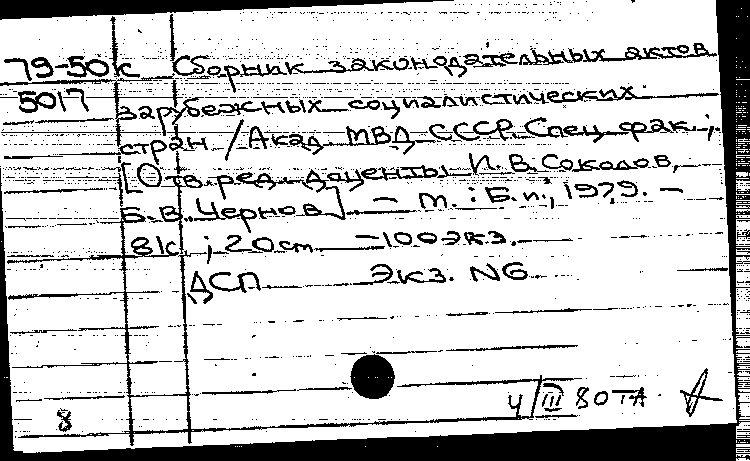 79-50к Сборник законодательных актов
5017 зарубежных социалистических
стран / Акад. МВД СССР. Спец. фак.;
[Отв. ред. доценты И. В. Соколов,
Б. В. Чернов]. – М. : Б. и., 1979. –
81с. ; 20 см. – 100 экз.
ДСП. Экз. N6.
4/III 80
8